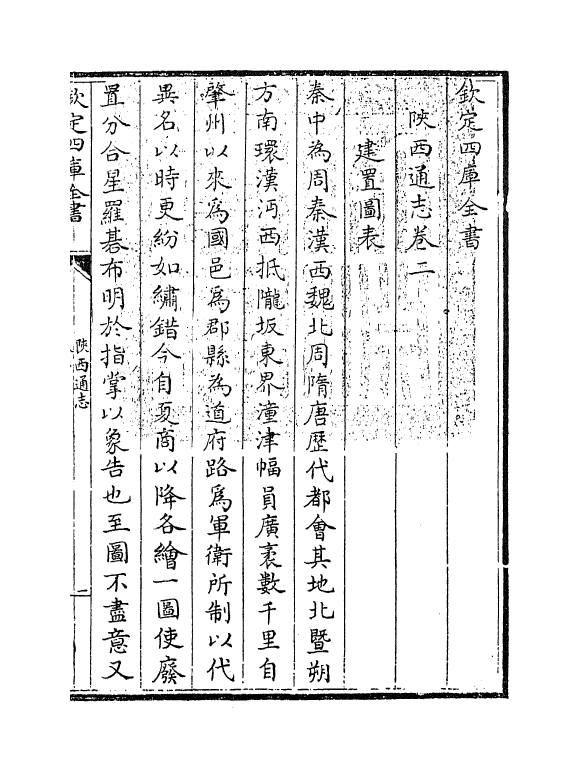 欽定四庫全書
陜西通志卷二
建置圖表
秦中為周秦漢西魏北周隋唐歴代都會其地北暨朔
方南環漢沔西抵隴坂東界潼津幅員廣袤數千里自
肇州以來爲國邑爲郡縣為道府路爲軍衛所制以代
異名以時更紛如繡錯今自夏商以降各繪一圖使廢
置分合星羅碁布明於指掌以象告也至圖不盡意又
欽定四庫全書
陜西通志
二